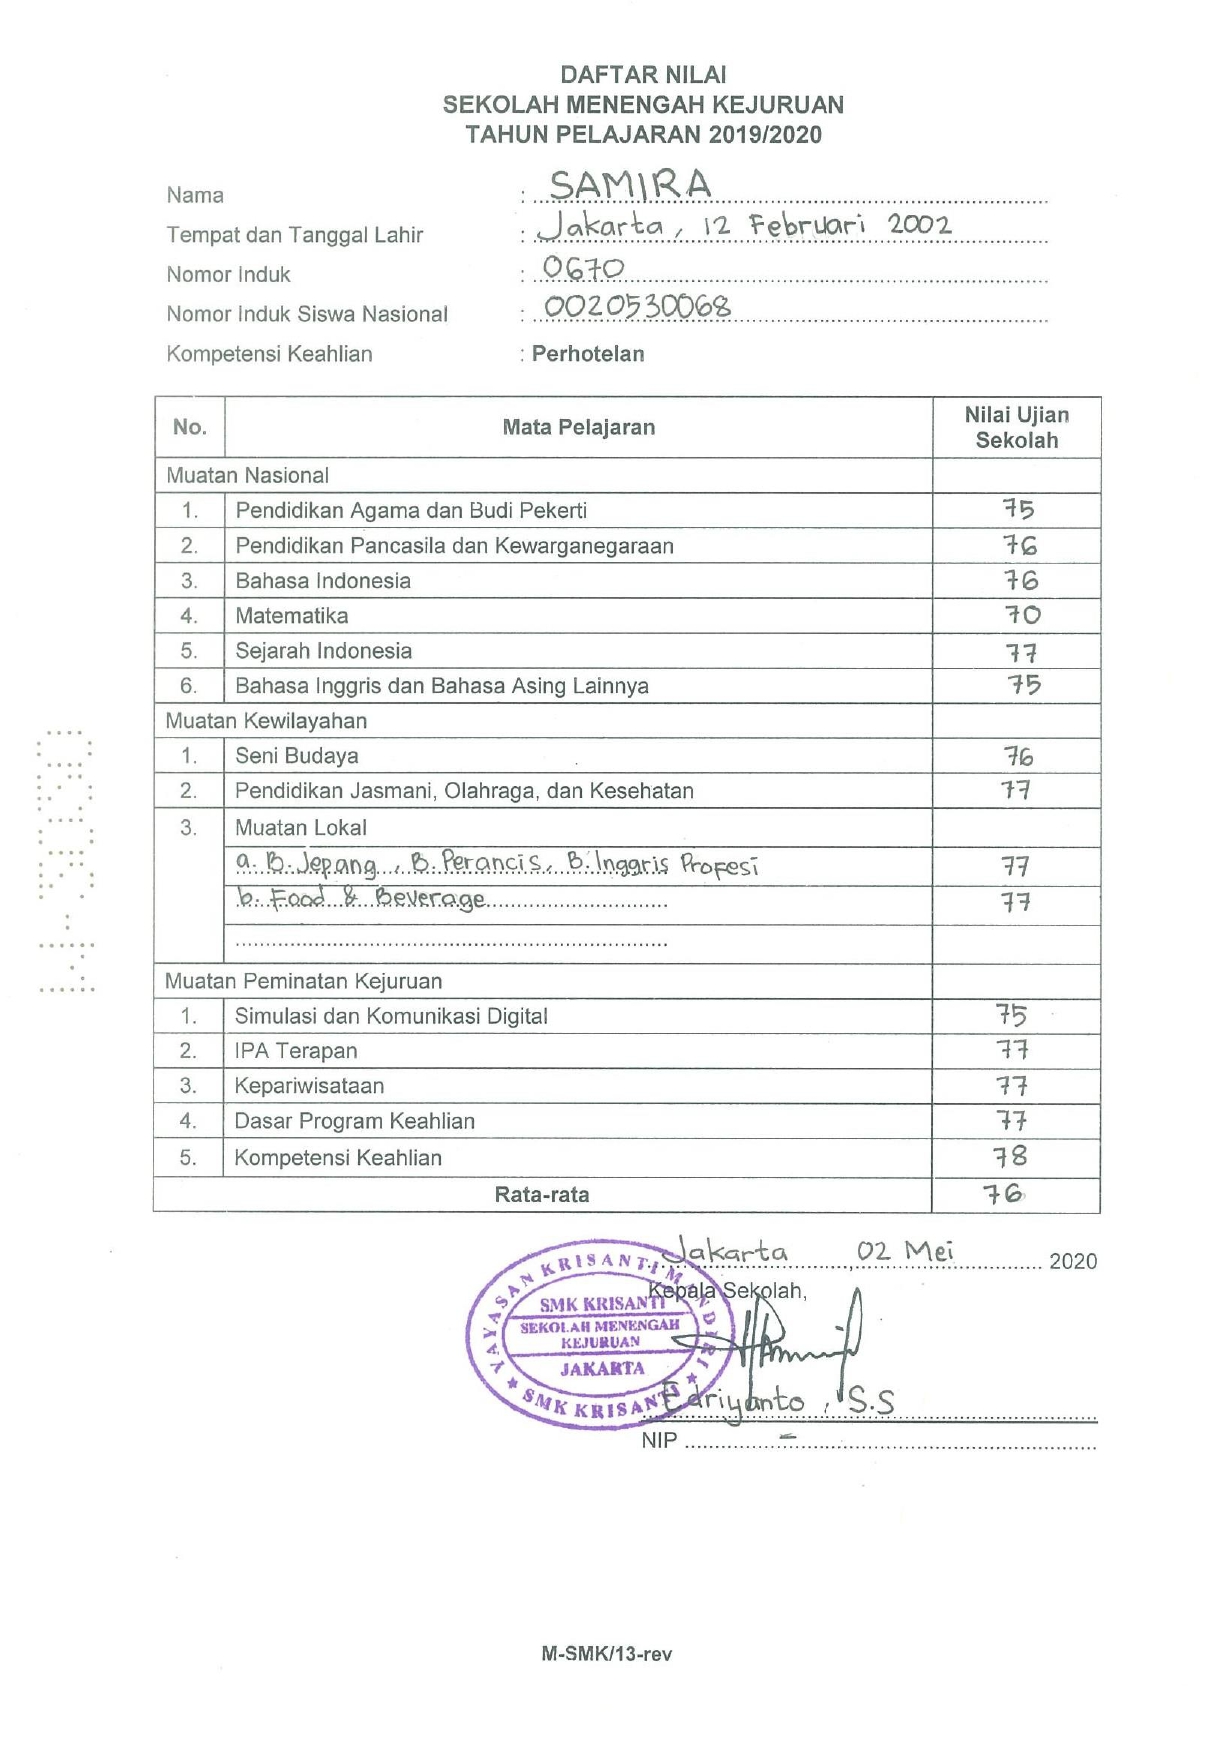 DAFTAR NILAI
SEKOLAH MENENGAH KEJURUAN
TAHUN PELAJARAN 2019/2020
Nama : SAMIRA
Tempat dan Tanggal Lahir : Jakarta, 12 Februari 2002
Nomor Induk : 0670
Nomor Induk Siswa Nasional : 0020530068
Kompetensi Keahlian : Perhotelan
No. Mata Pelajaran Nilai Ujian Sekolah
Muatan Nasional
1. Pendidikan Agama dan Budi Pekerti 75
2. Pendidikan Pancasila dan Kewarganegaraan 76
3. Bahasa Indonesia 76
4. Matematika 70
5. Sejarah Indonesia 77
6. Bahasa Inggris dan Bahasa Asing Lainnya 75
Muatan Kewilayahan
1. Seni Budaya 76
2. Pendidikan Jasmani, Olahraga, dan Kesehatan 77
3. Muatan Lokal
a. B. Jepang, B. Perancis, B. Inggris Profesi 77
b. Food & Beverage 77
Muatan Peminatan Kejuruan
1. Simulasi dan Komunikasi Digital 75
2. IPA Terapan 77
3. Kepariwisataan 77
4. Dasar Program Keahlian 77
5. Kompetensi Keahlian 78
Rata-rata 76
Jakarta, 02 Mei 2020
Kepala Sekolah,
YAYASAN KRISANTI MANDIRI
SMK KRISANTI
SEKOLAH MENENGAH
KEJURUAN
JAKARTA
SMK KRISANTI
Edriyanto, S.S
NIP -
M-SMK/13-rev